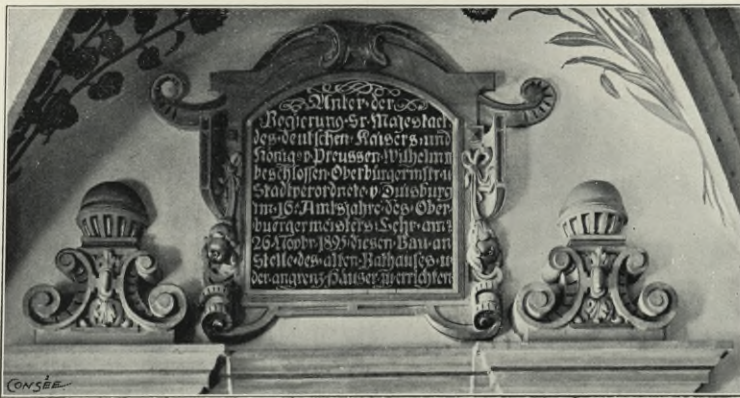 Unter·der
Regierung·Sr·Majestaet
des·deutschen·Kaisers·und
Königs·v·Preussen·Wilhelm·II
beschlossen·Oberbürgermstr·u
Stadtverordnete·v·Duisburg
im·16·Amtsjahre·des·Ober
buergermeisters·Lehr·am
26·Novbr·1895·diesen·Bau·an
Stelle·des·alten·Rathauses·u
der·angrenz·Häuser·zu·errichten
CONSÉE